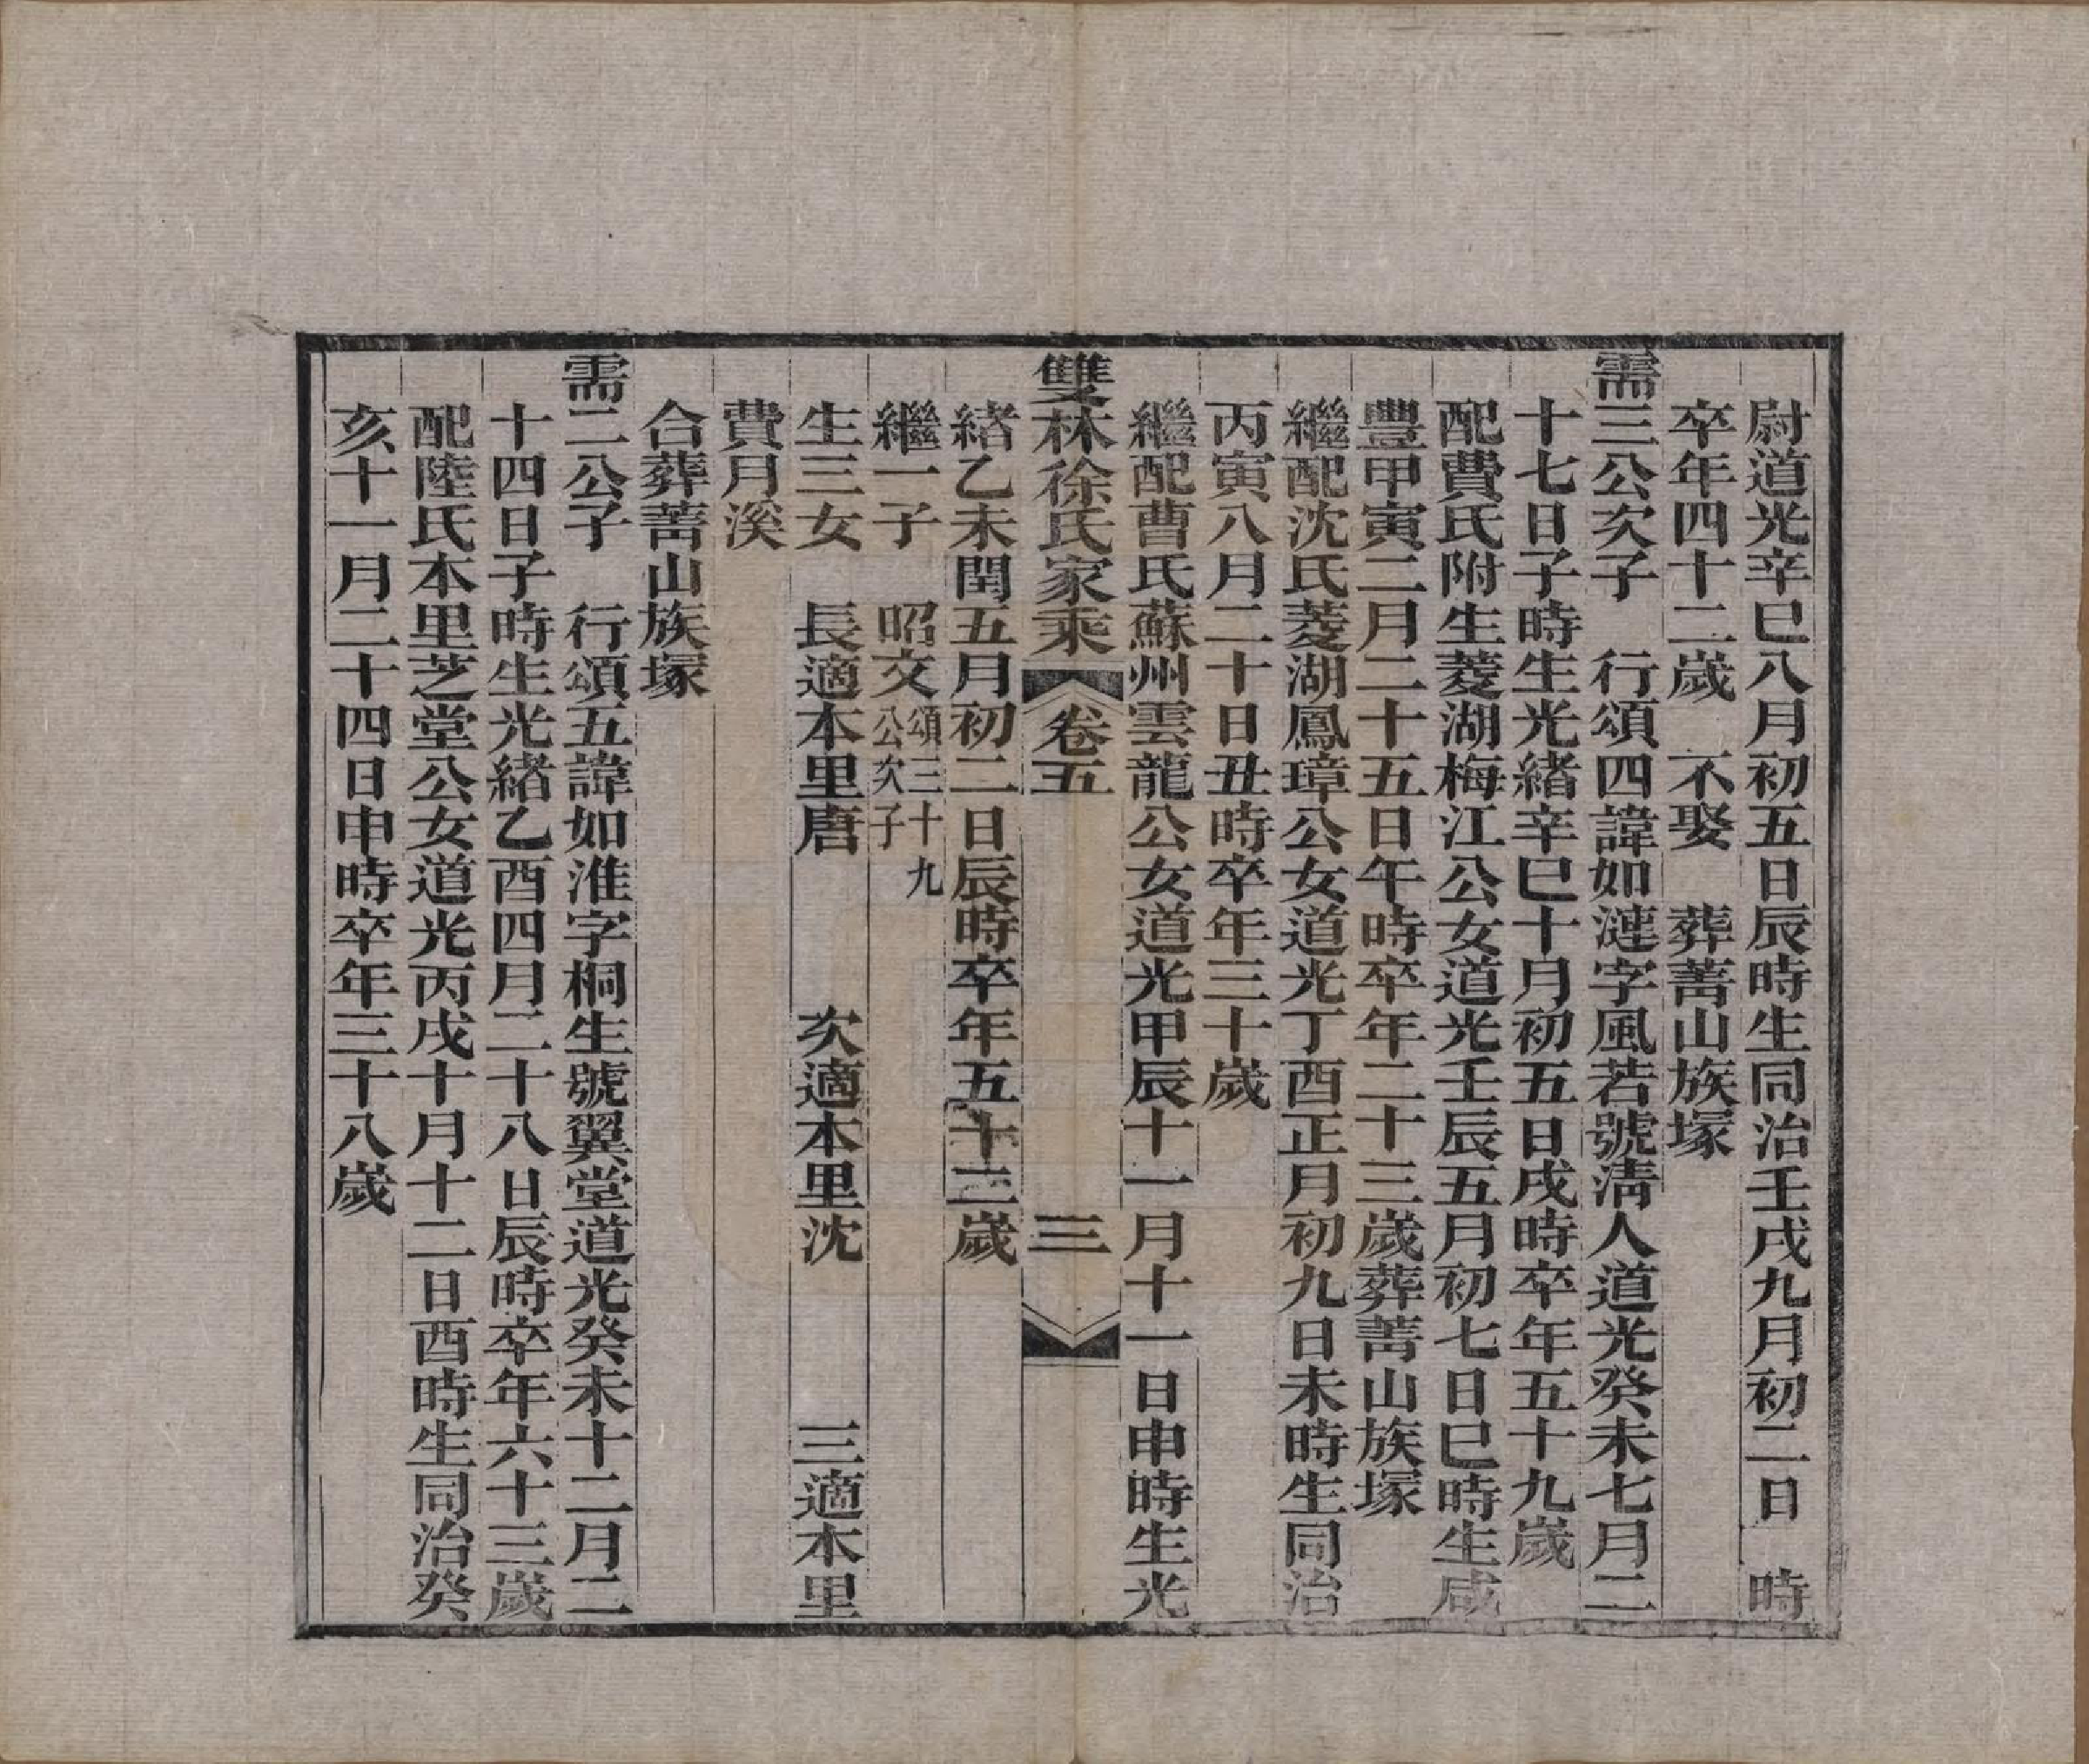 尉道光辛巳八月初五日辰時生同治壬戌九月初二日　時
卒年四十二歲　不娶　葬菁山族塚
需三公次子　行頌四諱如漣字風若號淸人道光癸未七月二
十七日子時生光緒辛巳十月初五日戌時卒年五十九歲
配費氏附生菱湖梅江公女道光壬辰五月初七日巳時生咸
豐甲寅二月二十五日午時卒年二十三歲葬菁山族塚
繼配沈氏菱湖鳳璋公女道光丁酉正月初九日未時生同治
丙寅八月二十日丑時卒年三十歲
繼配曹氏蘇州雲龍公女道光甲辰十一月十一日申時生光
雙林徐氏家乘　卷五　三
緒乙未閏五月初二日辰時卒年五十二歲
繼一子　昭文頌三十九公次子
生三女　長適本里唐　次適本里沈　三適本里
費月溪
合葬菁山族塚
需二公子　行頌五諱如淮字桐生號翼堂道光癸未十二月二
十四日子時生光緒乙酉四月二十八日辰時卒年六十三歲
配陸氏本里芝堂公女道光丙戌十月十二日酉時生同治癸
亥十一月二十四日申時卒年三十八歲